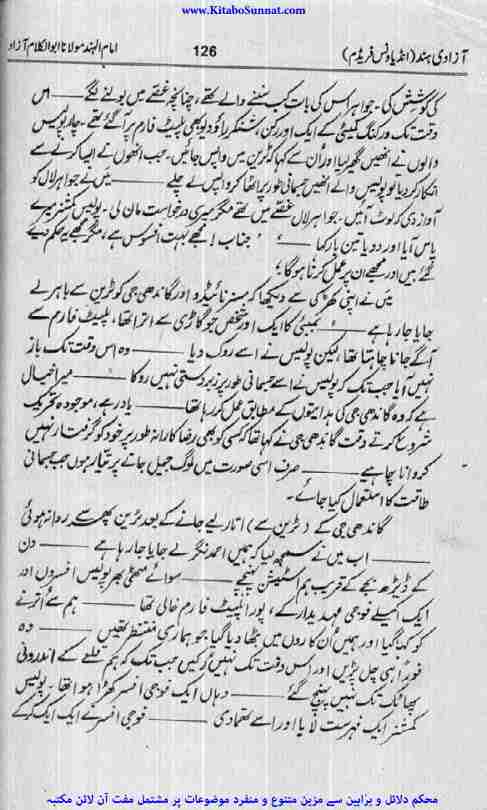 www.KitaboSunnat.com
آزادی ہند (انڈیا ونس فریڈم)
126
امام الہند مولانا ابوالکلام آزاد
کی کوشش کی۔ جواہر اس کی بات کب سننے والے تھے، چنانچہ غصے میں بولنے لگے —— اس
وقت تک ورکنگ کمیٹی کے ایک اور رکن، شنکر راؤ دیو بھی پلیٹ فارم پر آگئے تھے۔ چار پولیس
والوں نے انھیں گھیر لیا اور اُن سے کہا کہ ٹرین میں واپس جائیں۔ جب انھوں نے ایسا کرنے سے
انکار کر دیا تو پولیس والے انھیں جسمانی طور پر اٹھا کر واپس لے چلے —— میں نے جواہر لال کو
آواز دی کہ لوٹ آئیں۔ جواہر لال غصے میں تھے مگر میری درخواست مان لی۔ پولیس کمشنر میرے
پاس آیا اور دو یا تین بار کہا —— ’جناب! مجھے بہت افسوس ہے، مگر مجھے یہ حکم دیے
گئے ہیں اور مجھے ان پر عمل کرنا ہوگا‘؛
میں نے اپنی کھڑکی سے دیکھا کہ مسز نائیڈو اور گاندھی جی کو ٹرین سے باہر لے
جایا جا رہا ہے —— کمیٹی کا ایک اور شخص جو گاڑی سے اترا تھا، پلیٹ فارم سے
آگے جانا چاہتا تھا، لیکن پولیس نے اسے روک دیا —— وہ اس وقت تک باز
نہیں آیا جب تک کہ پولیس نے اسے جسمانی طور پر زبردستی نہیں روکا —— میرا خیال
ہے کہ وہ گاندھی جی کی ہدایتوں کے مطابق عمل کر رہا تھا —— یاد رہے، موجودہ تحریک
شروع کرتے وقت گاندھی جی نے کہا تھا کہ کسی کو بھی رضا کارانہ طور پر خود کو گرفتار نہیں
کروانا چاہیے —— صرف اسی صورت میں لوگ جیل جانے پر تیار ہوں جب جسمانی
طاقت کا استعمال کیا جائے۔
گاندھی جی کے (ٹرین سے) اتار لیے جانے کے بعد ٹرین پھر سے روانہ ہوئی
—— اب میں نے سمجھ لیا کہ ہمیں احمد نگر لے جایا جا رہا ہے —— دن
کے ڈیڑھ بجے کے قریب ہم اسٹیشن پہنچے —— سوائے مٹھی بھر پولیس افسروں اور
ایک اکیلے فوجی عہدیدار کے، پورا پلیٹ فارم خالی تھا —— ہم سے اُترنے
کو کہا گیا اور ہمیں اُن کاروں میں بٹھا دیا گیا جو ہماری منتظر تھیں —— وہ
فوراً ہی چل پڑیں اور اس وقت تک نہیں رکیں جب تک کہ ہم قلعے کے اندرونی
پھاٹک تک نہیں پہنچ گئے —— وہاں ایک فوجی افسر کھڑا ہوا تھا۔ پولیس
کمشنر ایک فہرست لایا اور اسے تھما دی —— فوجی افسر نے ایک ایک کر کے
محکم دلائل و براہین سے مزین متنوع و منفرد موضوعات پر مشتمل مفت آن لائن مکتبہ